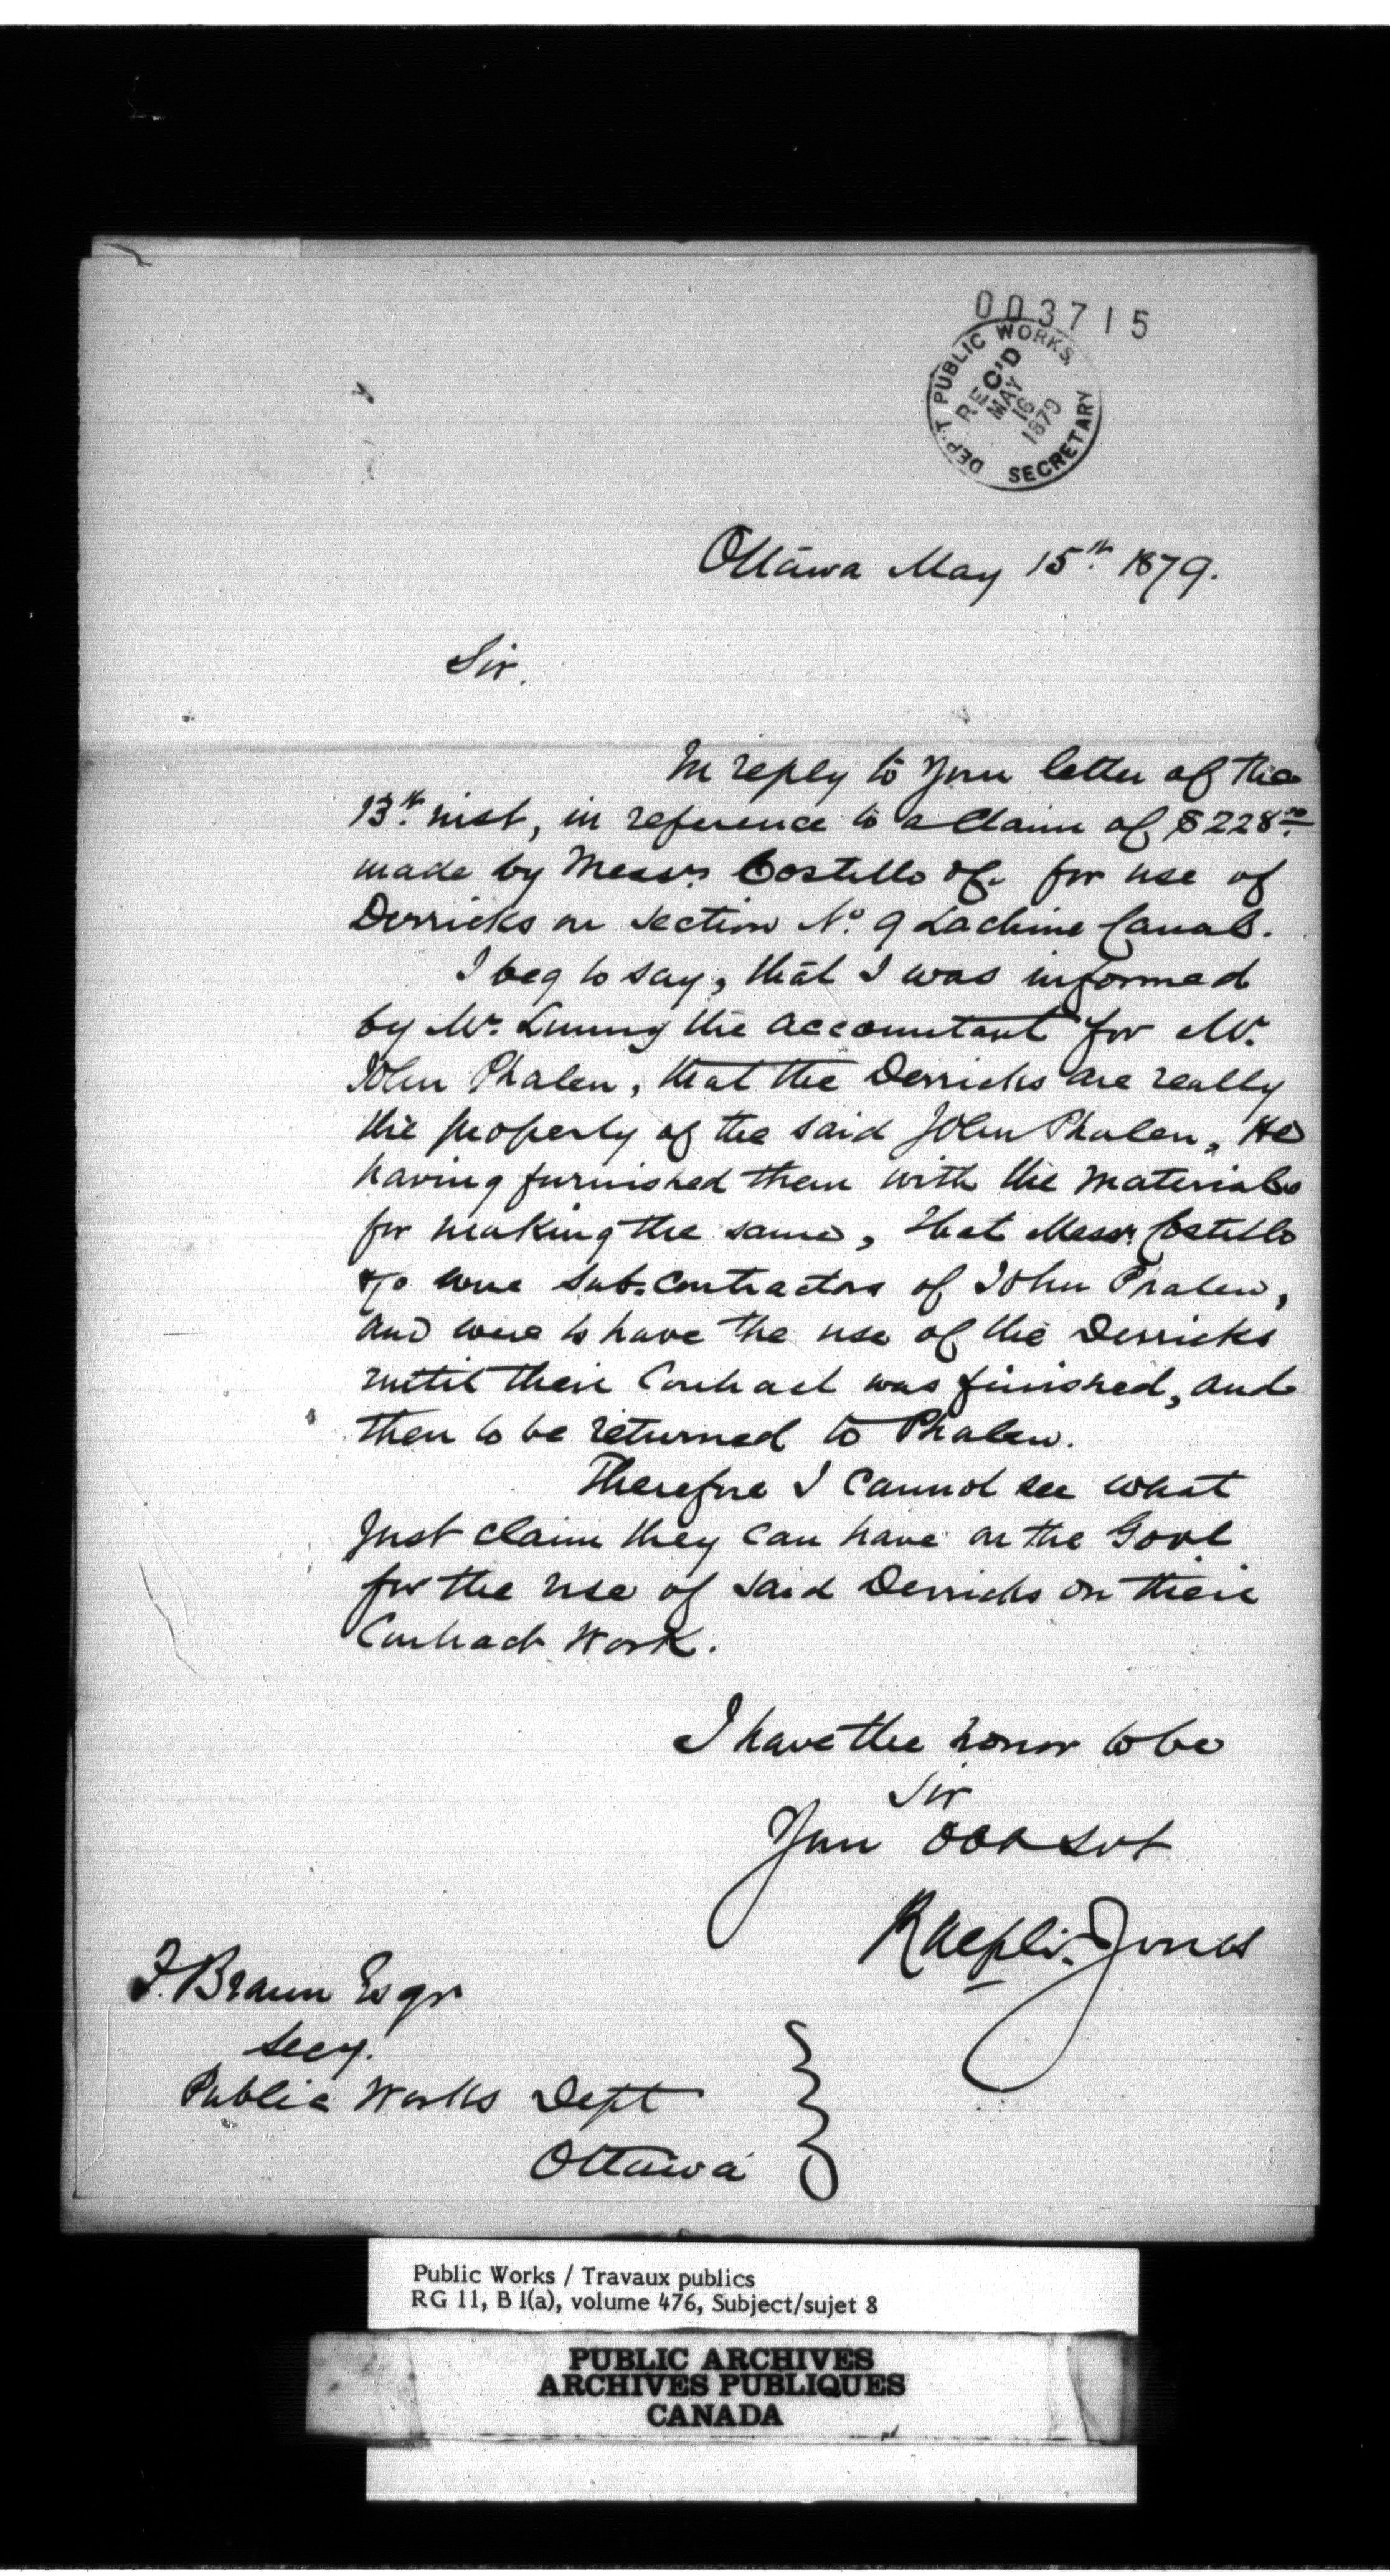 003715
DEP'T PUBLIC WORKS,
REC'D
MAY
16
1879
SECRETARY
Ottawa May 15th 1879.
Sir,
In reply to Your letter of the
13th inst, in reference to a Claim of $228.00
made by Messrs Costello & Co. for use of
Derricks on Section No. 9 Lachine Canal.
I beg to say, that I was informed
by Mr. the accountant for Mr.
John Phalen, that the Derricks are really
the property of the said John Phalen, He
having furnished them with the materials
for making the same, that Messrs Costello
& Co were Sub-Contractors of John Phalen,
and were to have the use of the Derricks
until their Contract was finished, and
then to be returned to Phalen.
Therefore I cannot see what
Just claim they can have on the Govt
for the use of said Derricks on their
Contract Work.
I have the honor to be
Sir
Your Obt Svt
Jones
F. Braun Esqr
Secy.
Public Works Dept
Ottawa
Public Works / Travaux publics
RG 11, B 1(a), volume 476, Subject/sujet 8
PUBLIC ARCHIVES
ARCHIVES PUBLIQUES
CANADA